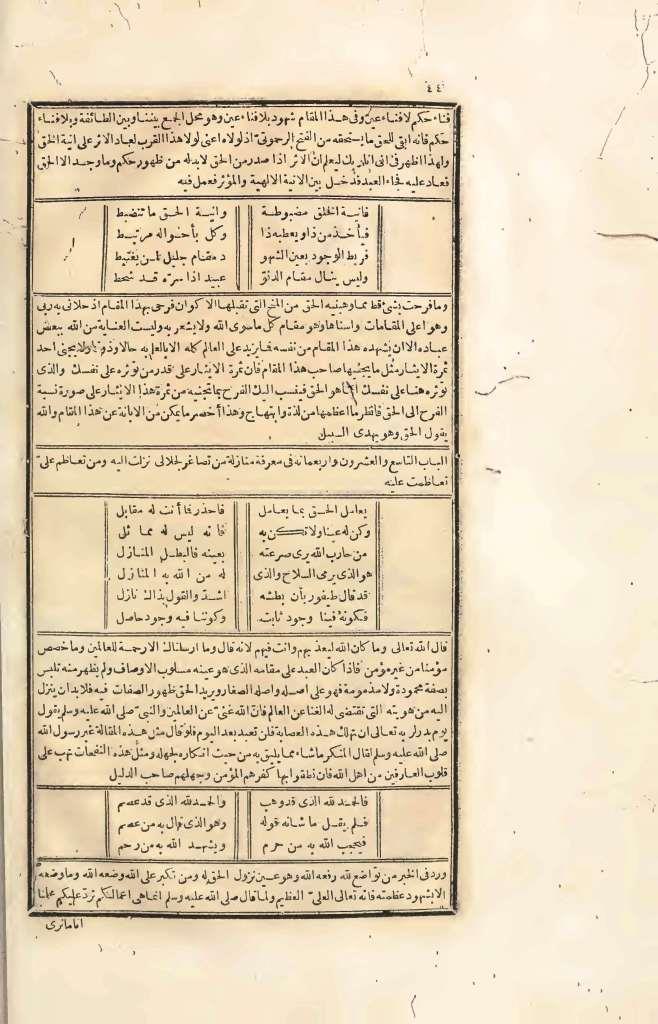 ٤٤
فناء حكم لا فناء عين وفى هذا المقام شهود بلا فناء عين وهو محل الجمع بيننا وبين الطائفة وبلا فناء
حكم فانه ابقى للحق ما يستحقه من الفتح الرحموتى اذ لولاه اعنى لولا هذا القرب لعاد الاثر على انية الحق
ولهذا اظهر فى انى انا ربك ليعلم ان الاثر اذا صدر من الحق لا بد له من ظهور حكم وما وجد الا الحق
فعاد عليه فجاء العبد فدخل بين الانية الالهية والمؤثر فعمل فيه
فانية الخلق مضبوطة وانية الحق ما تنضبط
فيأخذ من ذا ويعطيه ذا وكل بأحواله مرتبط
فربط الوجود بعين الشهو د مقام جليل لمن يغتبط
وليس ينال مقام الدنو عبيد اذا سره قد شحط
وما فرحت بشئ قط مما وهبنيه الحق من المنح التى تقبلها الاكوان فرحى بهذا المقام اذ حلانى به ربى
وهو اعلى المقامات واسناها وهو مقام كل ما سوى الله ولا يشعر به وليست العناية من الله ببعض
عباده الا ان يشهده هذا المقام من نفسه فما يزيد على العالم كله الا بالعلم به حالا وذوقا ولا يجنى احد
ثمرة الايثار مثل ما يجنيها صاحب هذا المقام فان ثمرة الايثار على قدر من تؤثره على نفسك والذى
تؤثره هنا على نفسك انما هو الحق فينسب اليك الفرح بما تجنيه من ثمرة هذا الايثار على صورة نسبة
الفرح الى الحق فانظر ما اعظمها من لذة وابتهاج وهذا أخصر ما يمكن من الابانة عن هذا المقام والله
يقول الحق وهو يهدى السبيل
الباب التاسع والعشرون واربعمائة فى معرفة منازلة من تصاغر لجلالى نزلت اليه ومن تعاظم علىّ
تعاظمت عليه
يعامل الحق بما يعامل فاحذر فأنت له مقابل
وكن له عينا ولا تكن به فانه ليس له مماثل
من حارب الله يرى صرعته بعينه فالبطل المنازل
هو الذى يرمى السلاح والذى له من الله به المنازل
قد قال طيفور بأن بطشه اشد والقول بذاك نازل
فكونه فينا وجود ثابت وكوننا فيه وجود حاصل
قال الله تعالى وما كان الله ليعذبهم وانت فيهم لانه قال وما ارسلناك الا رحمة للعالمين وما خصص
مؤمنا من غير مؤمن فاذا كان العبد على مقامه الذى هو عينه مسلوب الاوصاف ولم يظهر منه تلبس
بصفة محمودة ولا مذمومة فهو على اصله واصله الصغار ويريد الحق ظهور الصفات فيه فلا بد ان ينزل
اليه من هويته التى تقتضى له الغنا عن العالم فان الله غنىّ عن العالمين والنبى صلى الله عليه وسلم يقول
يوم بدر لربه تعالى ان تهلك هذه العصابة فلن تعبد بعد اليوم فلو قال مثل هذه المقالة غير رسول الله
صلى الله عليه وسلم لقال المنكر ما شاء مما يليق به من حيث انكاره لجهله ومثل هذه النفحات تهب على
قلوب العارفين من اهل الله فان نطقوا بها كفرهم المؤمن وجهلهم صاحب الدليل
فالحمد لله الذى قد وهب والحمد لله الذى قد عصم
فلم يقل ما شانه قوله وهو الذى قال به من عصم
فيحجب الله به من حرم ويشهد الله به من رحم
ورد فى الخبر من تواضع لله رفعه الله وهو عين نزول الحق له ومن تكبر على الله وضعه الله وما وضعه
الا بشهود عظمته فانه تعالى العلىّ العظيم ولما قال صلى الله عليه وسلم انما هى اعمالكم تردّ عليكم علمنا